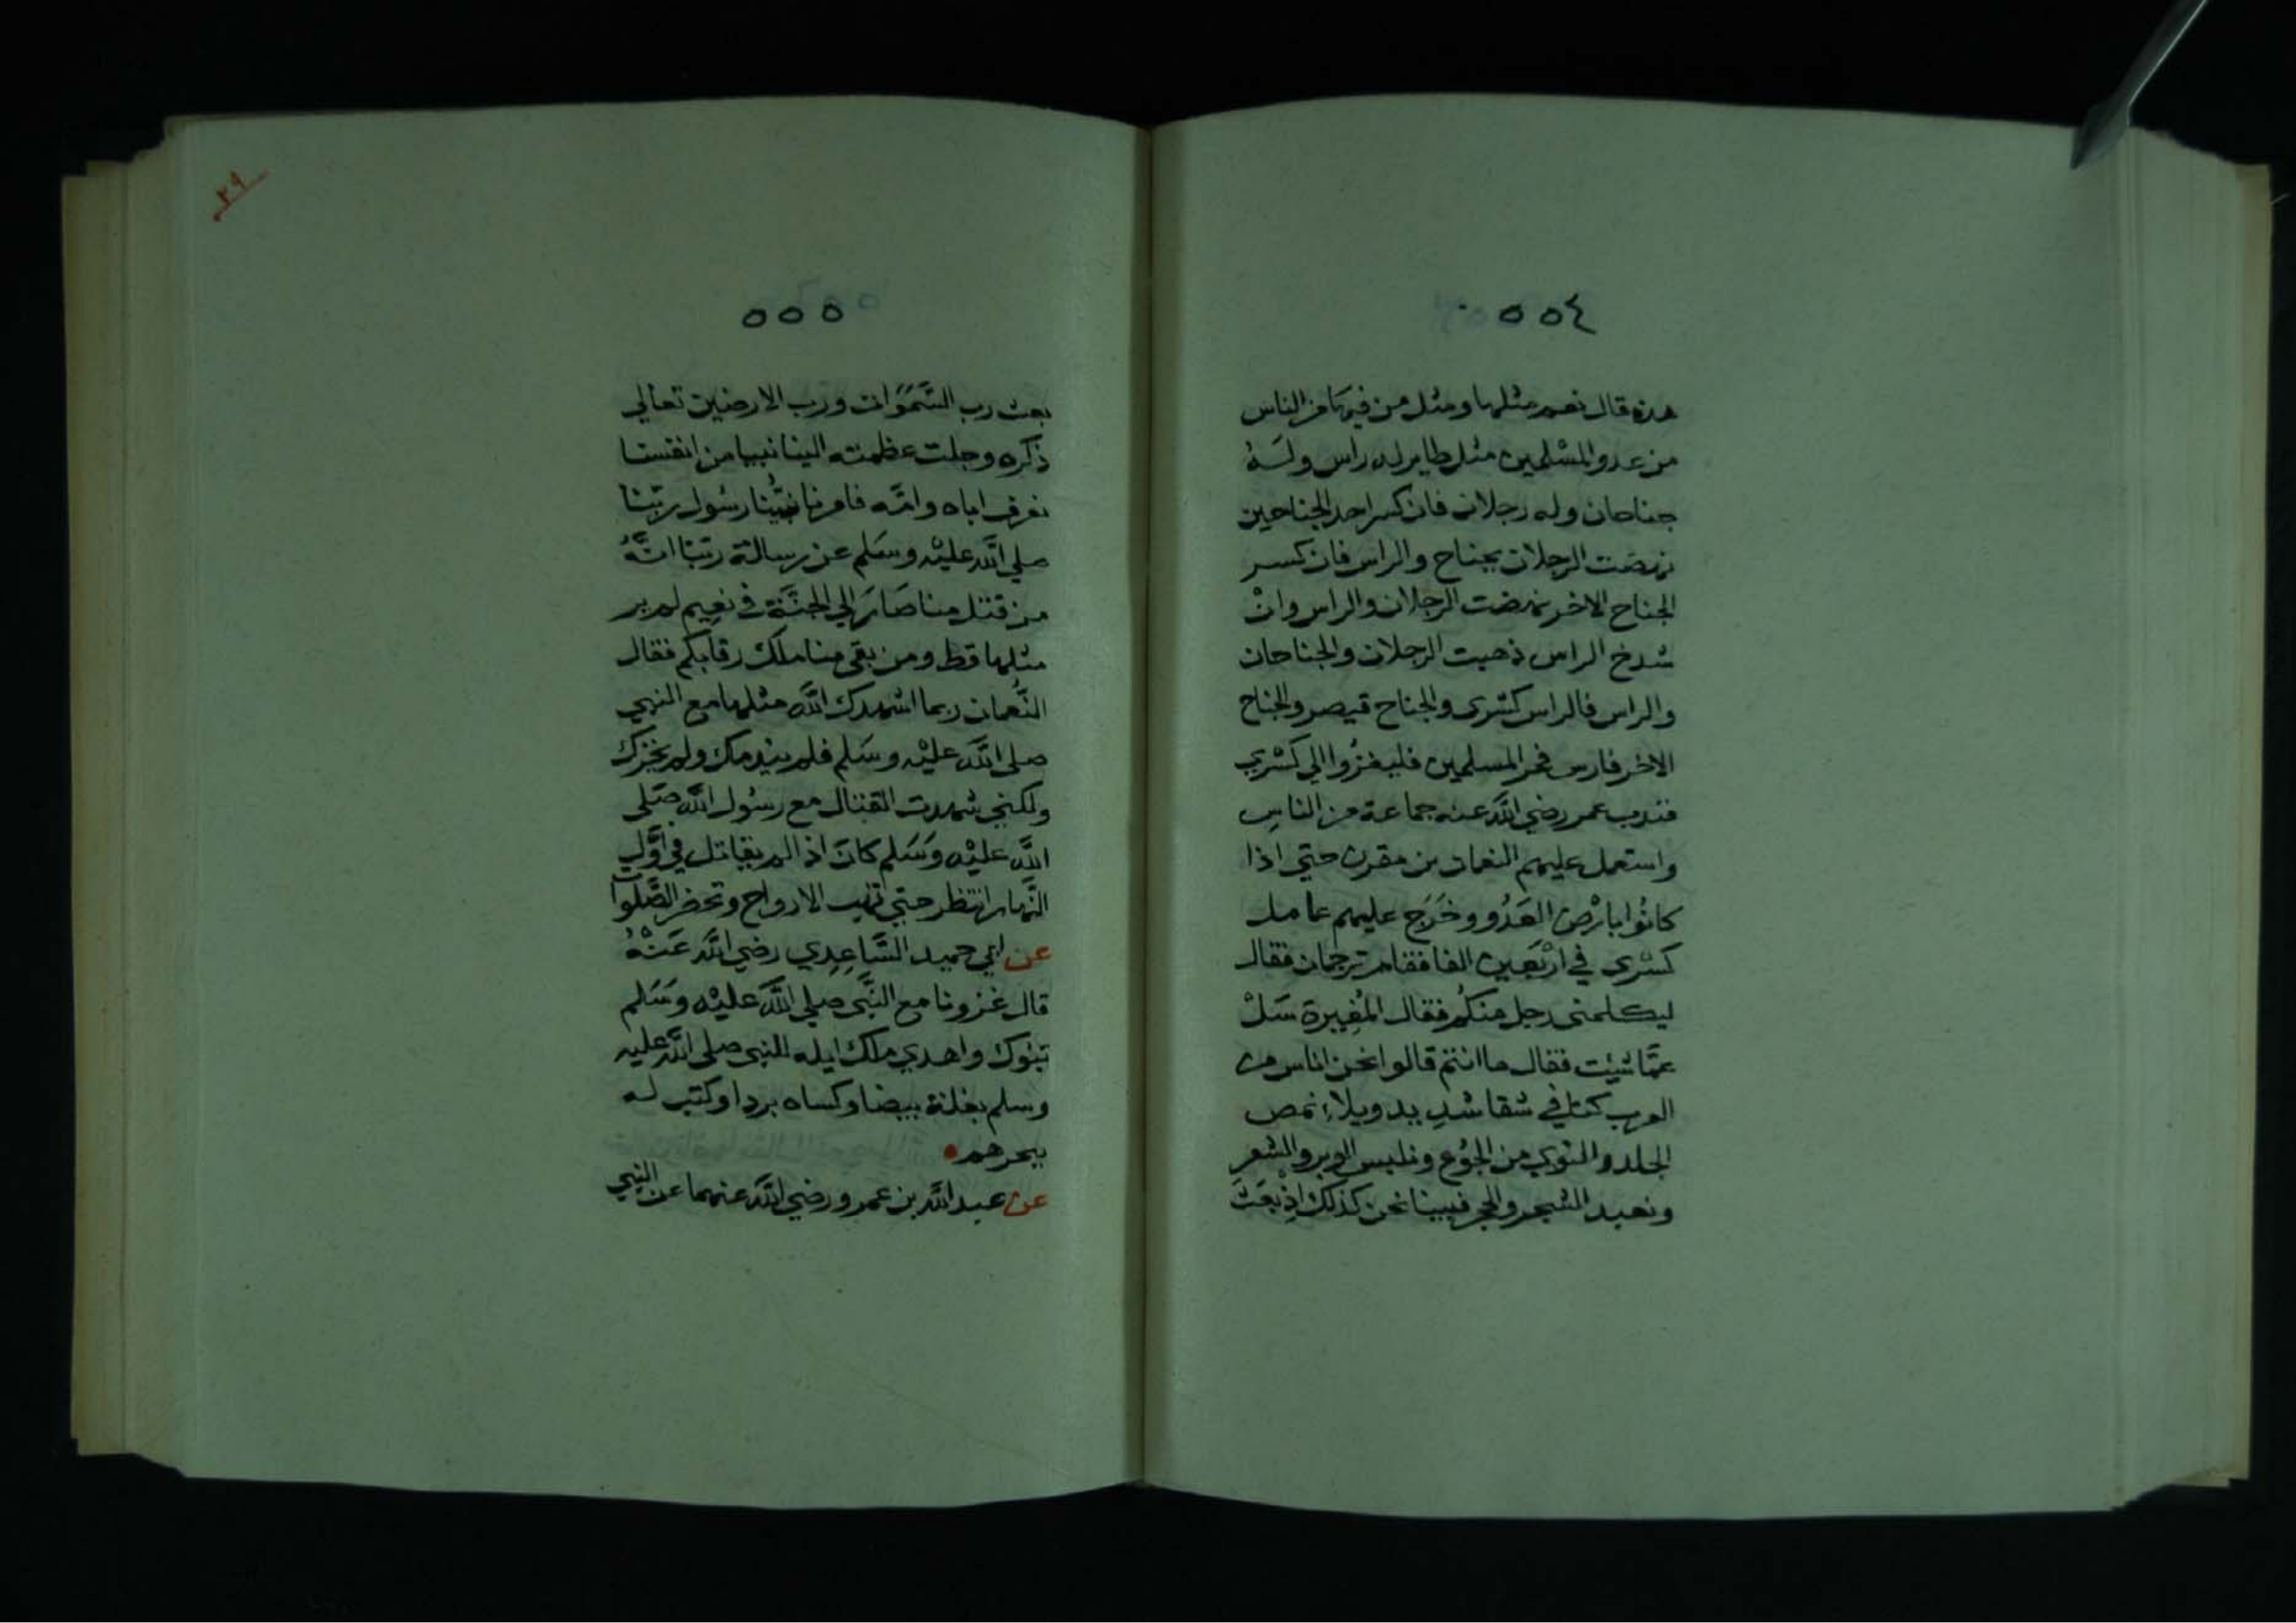 ٥٥٤
هذه قال نعم مثلها ومثل من فيها من الناس
من عدو المسْلمين مثل طاير له راس ولَهُ
جناحان وله رجلان فان كسر احد الجناحين
نهضت الرجلان بجناح والراس فان كسر
الجناح الاخر نهضت الرجلان والراس وانْ
شدخ الراس ذهبت الرجلان والجناحان
والراس فالراس كسْرى والجناح قيصر والجناح
الاخر فارس فمر المسلمين فلينفرُوا الي كسْري
فندب عمر رضي اللَّه عنه جماعة من الناسِ
واستعمل عليهم النعمان بن مقرن حتي اذا
كانُوا بارْض العَدُو وخَرَج عليهم عامل
كسْرى في ارْبَعين الفا فقام ترجمان فقال
ليكلمني رجل منكُم فقال المُغِيرة سَلْ
عمَّا شئت فقال ما انتم قالوا نحن اناس من
العرب كنا في شقا شديد وبلاء نمص
الجلد والنوي من الجُوْع ونلبس الوبر والشعر
ونعبد الشجر والحجر فبينا نحن كذلك اذْ بعَثَ
٢٩
٥٥٥
بعث رب السَّمَوَات ورب الارضين تعالي
ذكره وجلت عظمته الينا نبيا من انفسنا
نعرف اباه وامَّه فامرنا نبيُّنا رسُول ربّنا
صلي اللَّه عليْه وسَلم عن رسالة ربّنا انَّهُ
من قتل منا صَارَ الي الجنَّة في نعِيم لم ير
مثلها قط ومن بقي منا ملك رقابكم فقال
النُّعمان ربما اشهدك اللَّه مثلها مع النبي
صلى اللَّه عليْه وسَلم فلم يندمك ولم يخزك
ولكني شهدت القتال مع رسُول اللَّه صَلى
اللَّه عليْه وسَلم كانَ اذا لم يقاتل في اوَّل
النَّهار انتظر حتي تهب الارواح وتحضر الصَّلوات
عن ابي حميد السَّاعِدي رضي اللَّه عَنْهُ
قال غزونا مع النَّبي صلي اللَّه عليْه وسَلم
تبُوك واهدي ملك ايله للنبي صلى اللَّه عليه
وسلم بغلة بيضا وكساه بردا وكتب له
ببحرهم
عن عبد اللَّه بن عمرو رضي اللَّه عنهما عن النبي